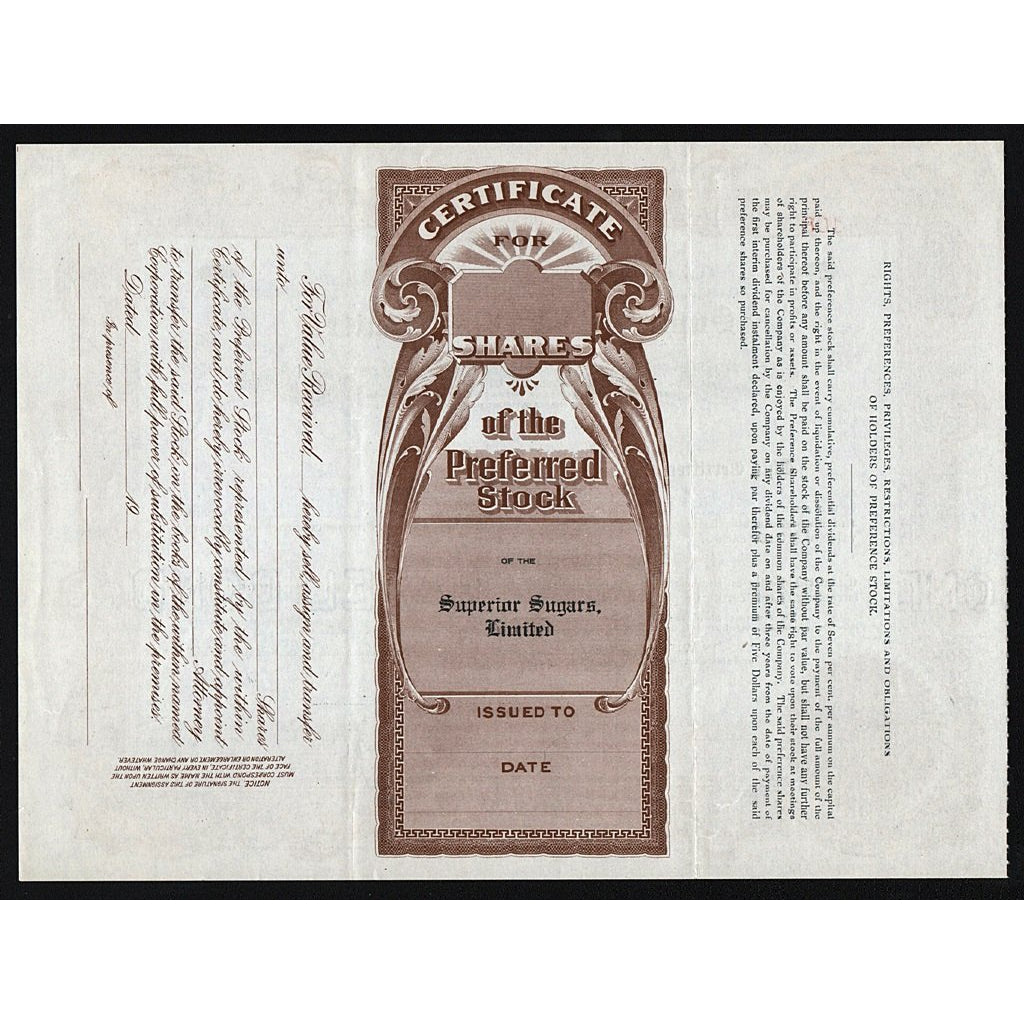 For Value Received, hereby sell, assign and transfer
unto
Shares
of the Preferred Stock represented by the within
Certificate, and do hereby irrevocably constitute and appoint
Attorney
to transfer the said Stock on the books of the within named
Corporation with full power of substitution in the premises.
Dated 19
In presence of
NOTICE. THE SIGNATURE OF THIS ASSIGNMENT
MUST CORRESPOND WITH THE NAME AS WRITTEN UPON THE
FACE OF THE CERTIFICATE, IN EVERY PARTICULAR, WITHOUT
ALTERATION OR ENLARGEMENT OR ANY CHANGE WHATEVER.
CERTIFICATE
FOR
SHARES
of the
Preferred
Stock
OF THE
Superior Sugars,
Limited
ISSUED TO
DATE
RIGHTS, PREFERENCES, PRIVILEGES, RESTRICTIONS, LIMITATIONS AND OBLIGATIONS
OF HOLDERS OF PREFERENCE STOCK.
The said preference stock shall carry cumulative, preferential dividends at the rate of Seven per cent. per annum on the capital
paid up thereon, and the right in the event of liquidation or dissolution of the Company to the payment of the full amount of the
principal thereof before any amount shall be paid on the stock of the Company without par value, but shall not have any further
right to participate in profits or assets. The Preference Shareholders shall have the same right to vote upon their stock at meetings
of shareholders of the Company as is enjoyed by the holders of the common shares of the Company. The said preference shares
may be purchased for cancellation by the Company on any dividend date on and after three years from the date of payment of
the first interim dividend instalment declared, upon paying par therefor plus a premium of Five Dollars upon each of the said
preference shares so purchased.